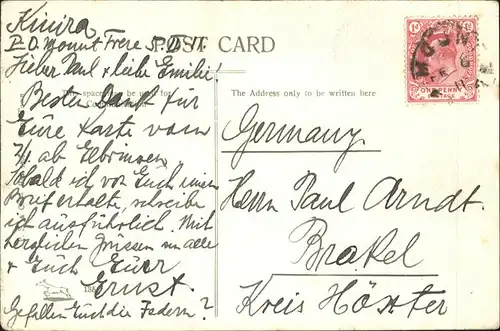 Kinira
P.O. Mount Frere
POST CARD
Lieber Paul & liebe Emilie!
Besten Dank für
Eure Karte vom
ab Elbrinxen.
Sobald ich von Euch einen
Brief erhalte, schreibe
ich ausführlich. Mit
herzlichen Grüssen an alle
& Euch Euer
Ernst.
Gefallen Euch die Federn?
The Address only to be written here
ONE PENNY
POSTAGE
Germany.
Herrn Paul Arndt.
Brakel
Kreis Höxter